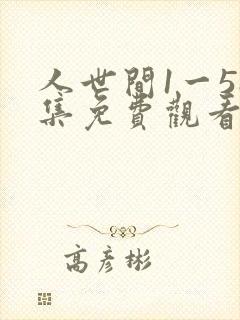 人世間1一5
集免費觀看
高彥彬